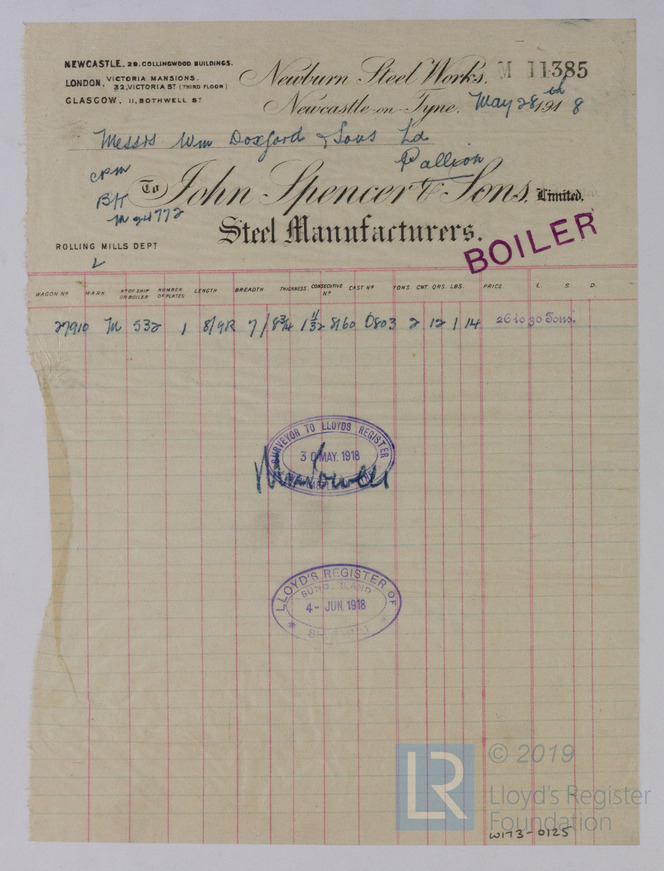 NEWCASTLE. 29. COLLINGWOOD BUILDINGS.
LONDON. VICTORIA MANSIONS. 32, VICTORIA ST (THIRD FLOOR)
GLASGOW. 11, BOTHWELL ST
Newburn Steel Works. M 11385
Newcastle-on-Tyne. May 28th 1918
Messrs Wm Doxford & Sons Ld
Pallion
CPM
BH
M 24772
To John Spencer & Sons, Limited.
Steel Manufacturers.
BOILER
ROLLING MILLS DEPT
WAGON No MARK No OF SHIP OR BOILER NUMBER OF PLATES LENGTH BREADTH THICKNESS CONSECUTIVE No CAST No TONS CWT QRS. LBS. PRICE L. S. D.
27910 M 532 1 8/9R 7/8¾ 1 11/32 8160 0803 2 12 1 14 26 to 30 Tons.
SURVEYOR TO LLOYDS REGISTER
30 MAY. 1918
LLOYD'S REGISTER OF
SUNDERLAND
4 - JUN. 1918
© 2019
LR
Lloyd's Register
Foundation
W173-0125